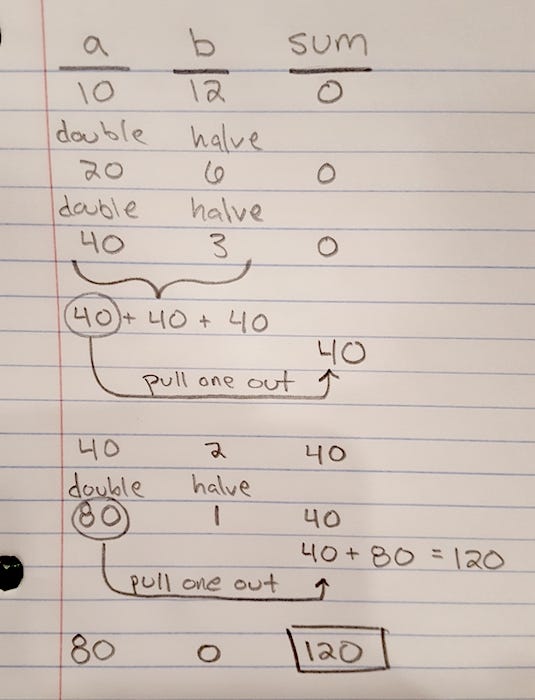 a b sum
10 12 0
double halve
20 6 0
double halve
40 3 0
40 + 40 + 40
40
pull one out
40 2 40
double halve
80 1 40
40 + 80 = 120
pull one out
80 0 120